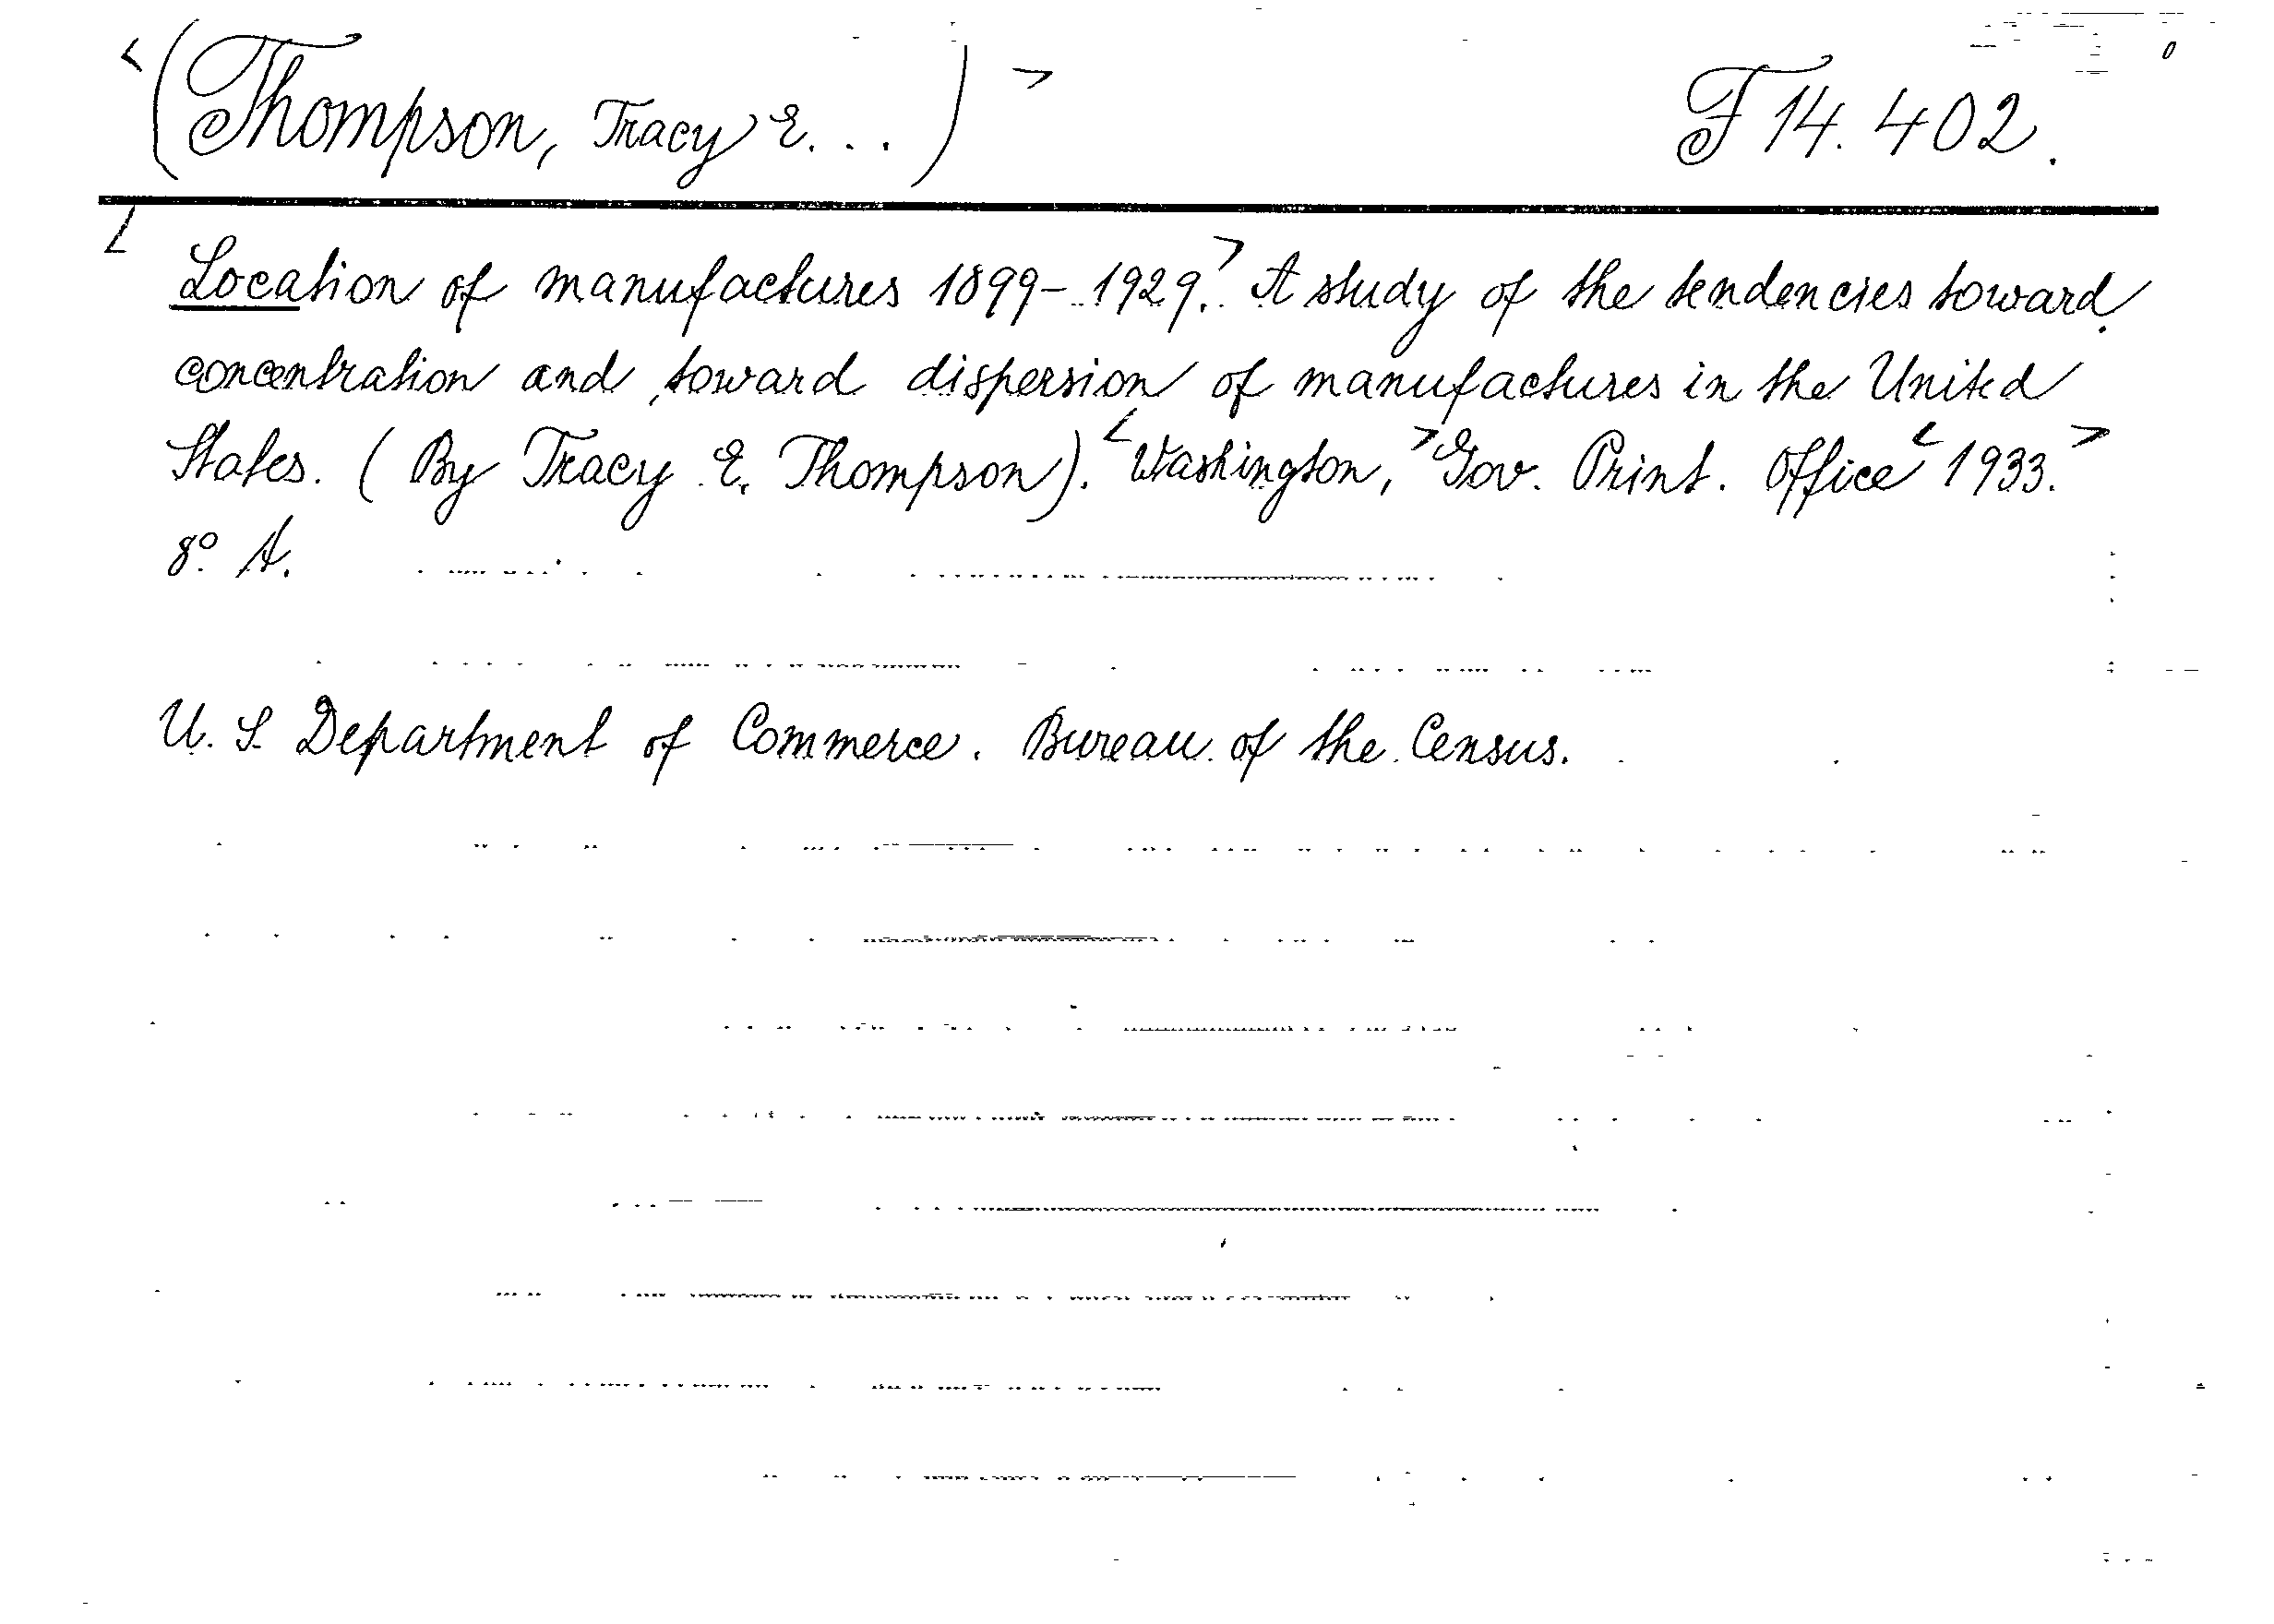 <(Thompson, Tracy E...)> F 14.402.
<Location of manufactures 1899-1929.> A study of the tendencies toward
concentration and toward dispersion of manufactures in the United
States. (By Tracy E. Thompson). <Washington,> Gov. Print. Office <1933.>
8° A.
U. S. Department of Commerce. Bureau of the Census.